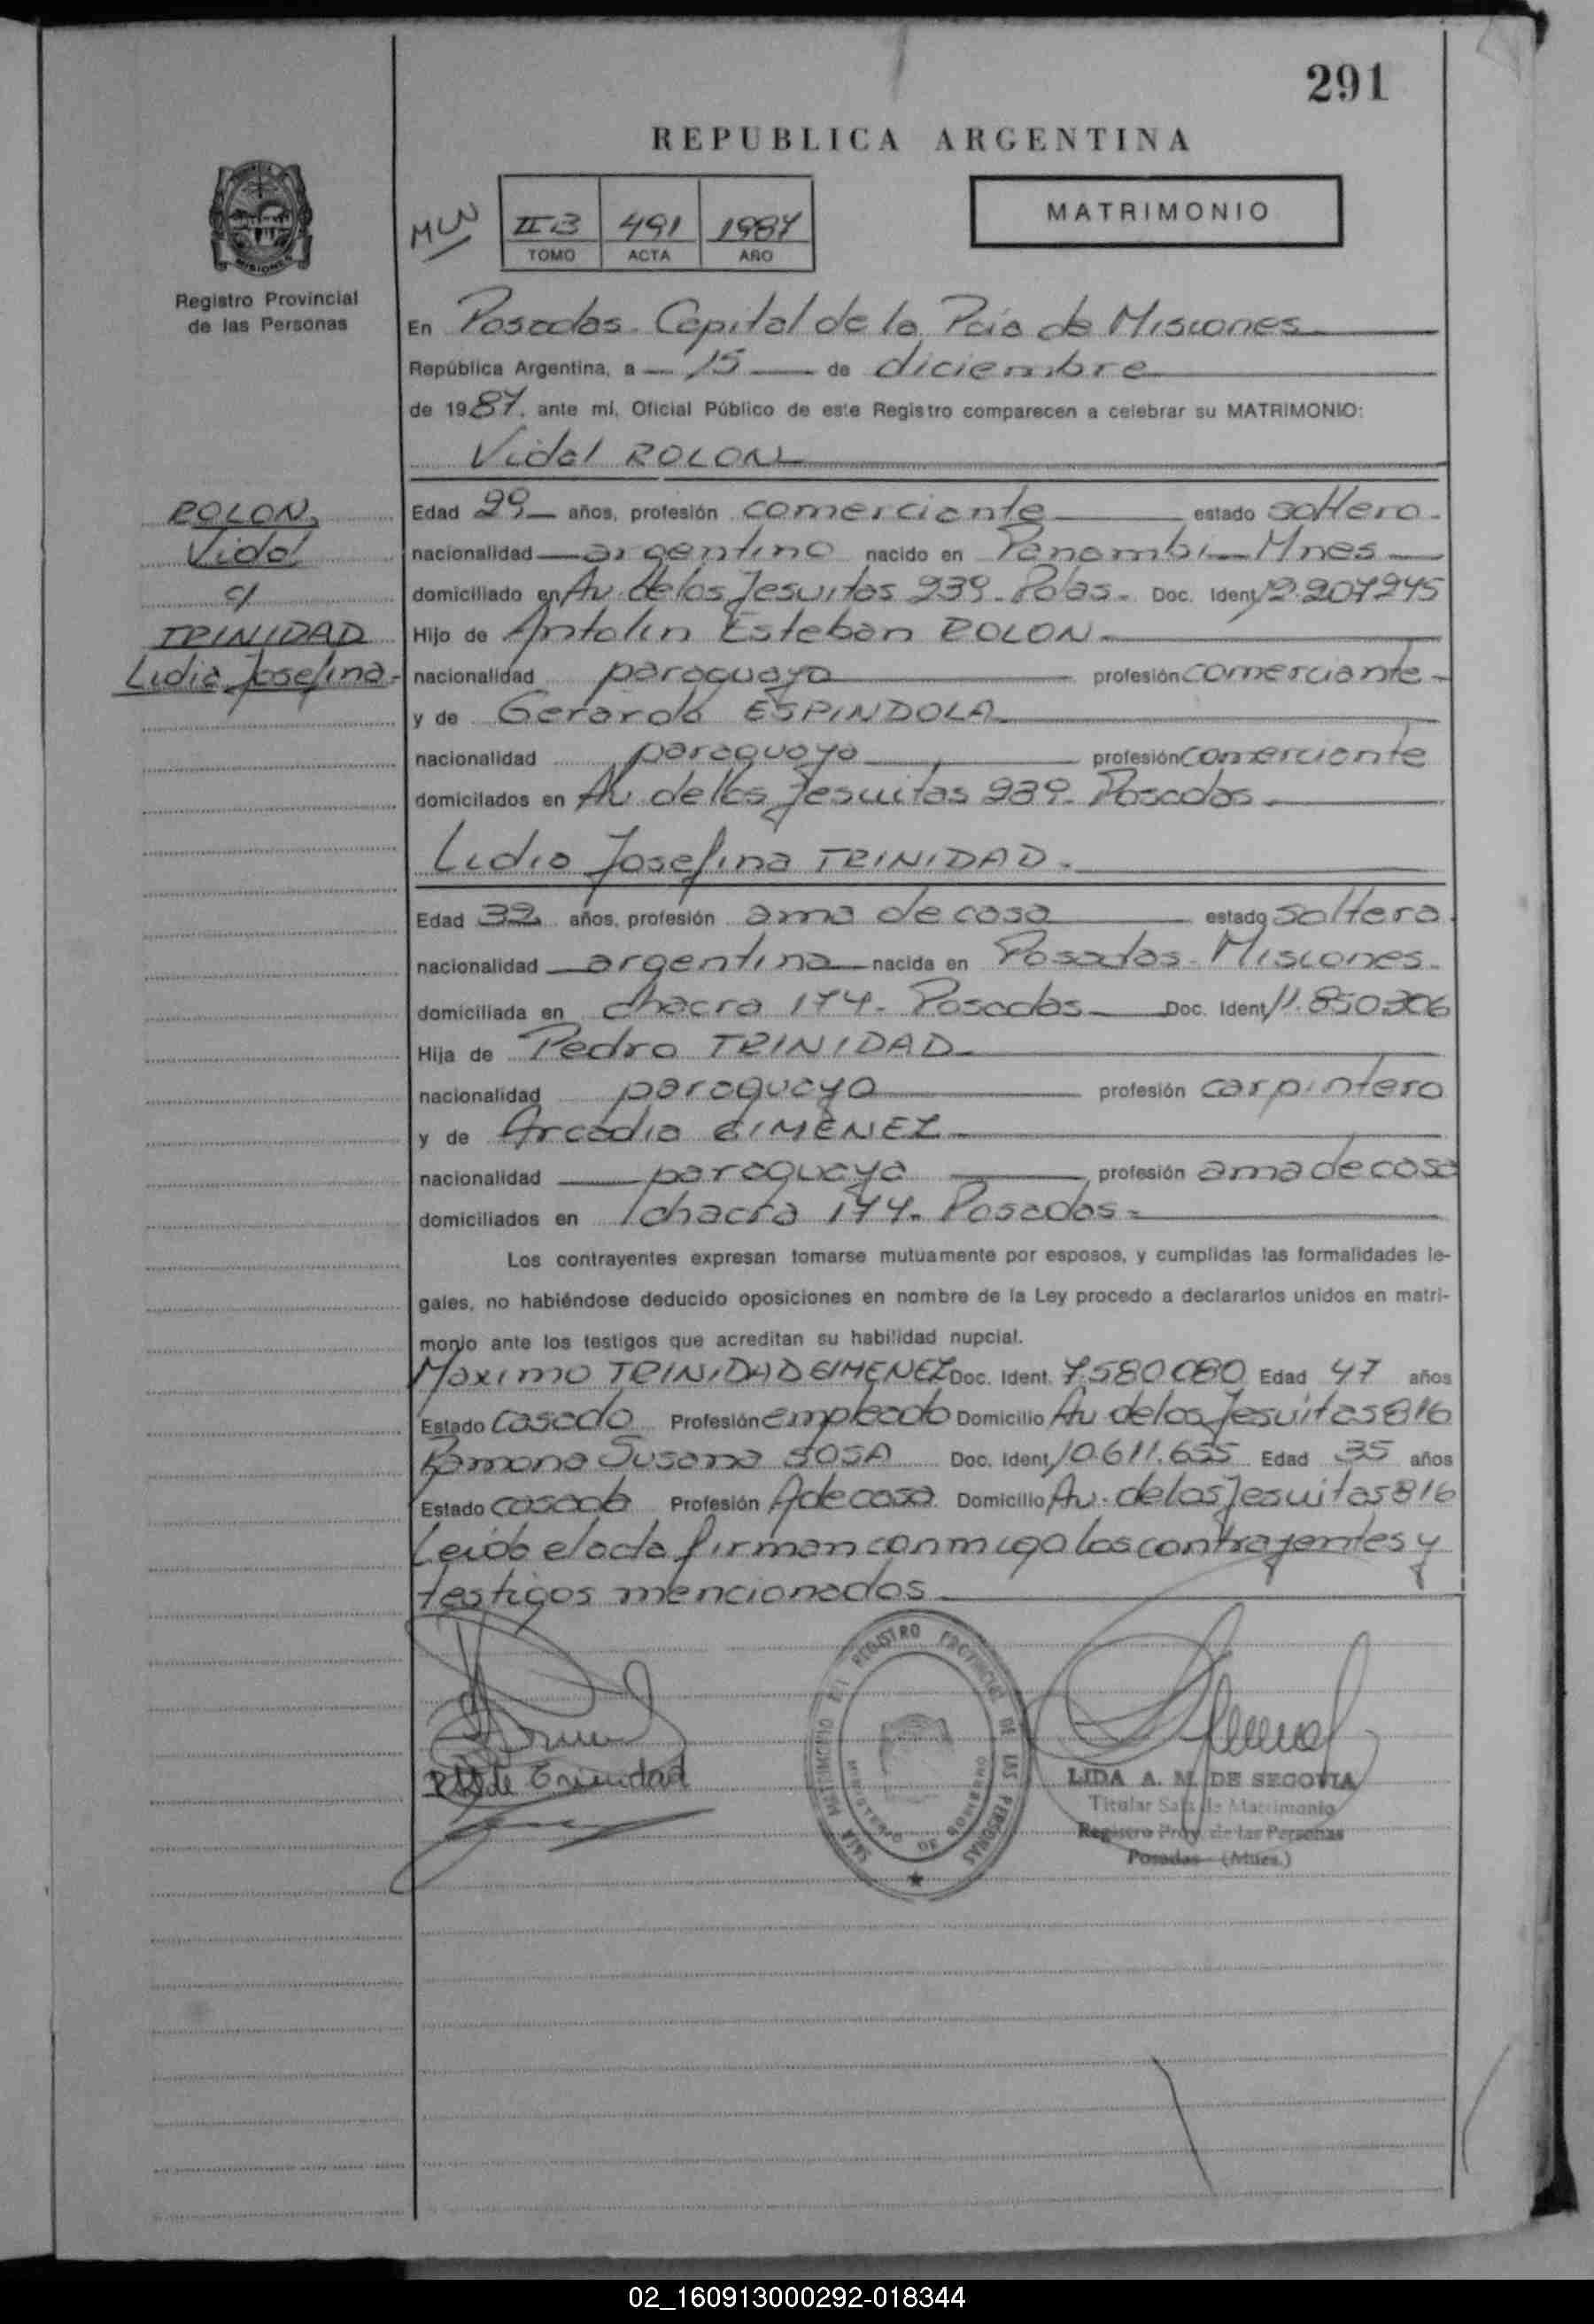 291
REPUBLICA ARGENTINA
MUN
II-B 491 1987
TOMO ACTA AÑO
MATRIMONIO
Registro Provincial
de las Personas
En Posadas. Capital de la Pcia de Misiones
República Argentina, a 15 de diciembre
de 1987. ante mí, Oficial Público de este Registro comparecen a celebrar su MATRIMONIO:
Vidal ROLON
ROLON,
Vidal
c/
TRINIDAD
Lidia Josefina.-
Edad 29 años, profesión comerciante estado soltero.
nacionalidad argentino nacido en Panambi - Mnes
domiciliado en Av. de los Jesuitas 939. Pdas. Doc. Ident. 12.207.945
Hijo de Antolin Esteban ROLON
nacionalidad paraguaya profesión comerciante
y de Gerarda ESPINDOLA
nacionalidad paraguaya profesión comerciante
domicilados en Av. de los Jesuitas 939. Posadas.
Lidia Josefina TRINIDAD.
Edad 32 años, profesión ama de casa estado soltera.
nacionalidad argentina nacida en Posadas - Misiones.
domiciliada en chacra 174. Posadas Doc. Ident. 11.850.306
Hija de Pedro TRINIDAD
nacionalidad paraguaya profesión carpintero
y de Arcadia GIMENEZ
nacionalidad paraguaya profesión ama de casa
domiciliados en chacra 174. Posadas.
Los contrayentes expresan tomarse mutuamente por esposos, y cumplidas las formalidades le-
gales, no habiéndose deducido oposiciones en nombre de la Ley procedo a declararlos unidos en matri-
monio ante los testigos que acreditan su habilidad nupcial.
Maximo TRINIDAD GIMENEZ Doc. Ident. 7.580.080 Edad 47 años
Estado casado Profesión empleado Domicilio Av. de los Jesuitas 816
Ramona Susana SOSA Doc. Ident. 10.611.655 Edad 35 años
Estado casada Profesión A de casa Domicilio Av. de los Jesuitas 816
Leída el acta firman conmigo los contrayentes y
testigos mencionados
de Trinidad
SALA MATRIMONIO DEL REGISTRO PROVINCIAL DE LAS PERSONAS
LIDA A. M. DE SEGOVIA
Titular Sala de Matrimonio
Registro Prov. de las Personas
Posadas (Mnes.)
02_160913000292-018344